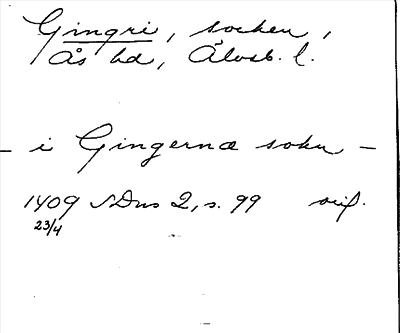 Gingri, socken,
Ås hd, Älvsb. l.
– i Gingernæ sokn –
1409 SDns 2, s. 99 orig.
23/4